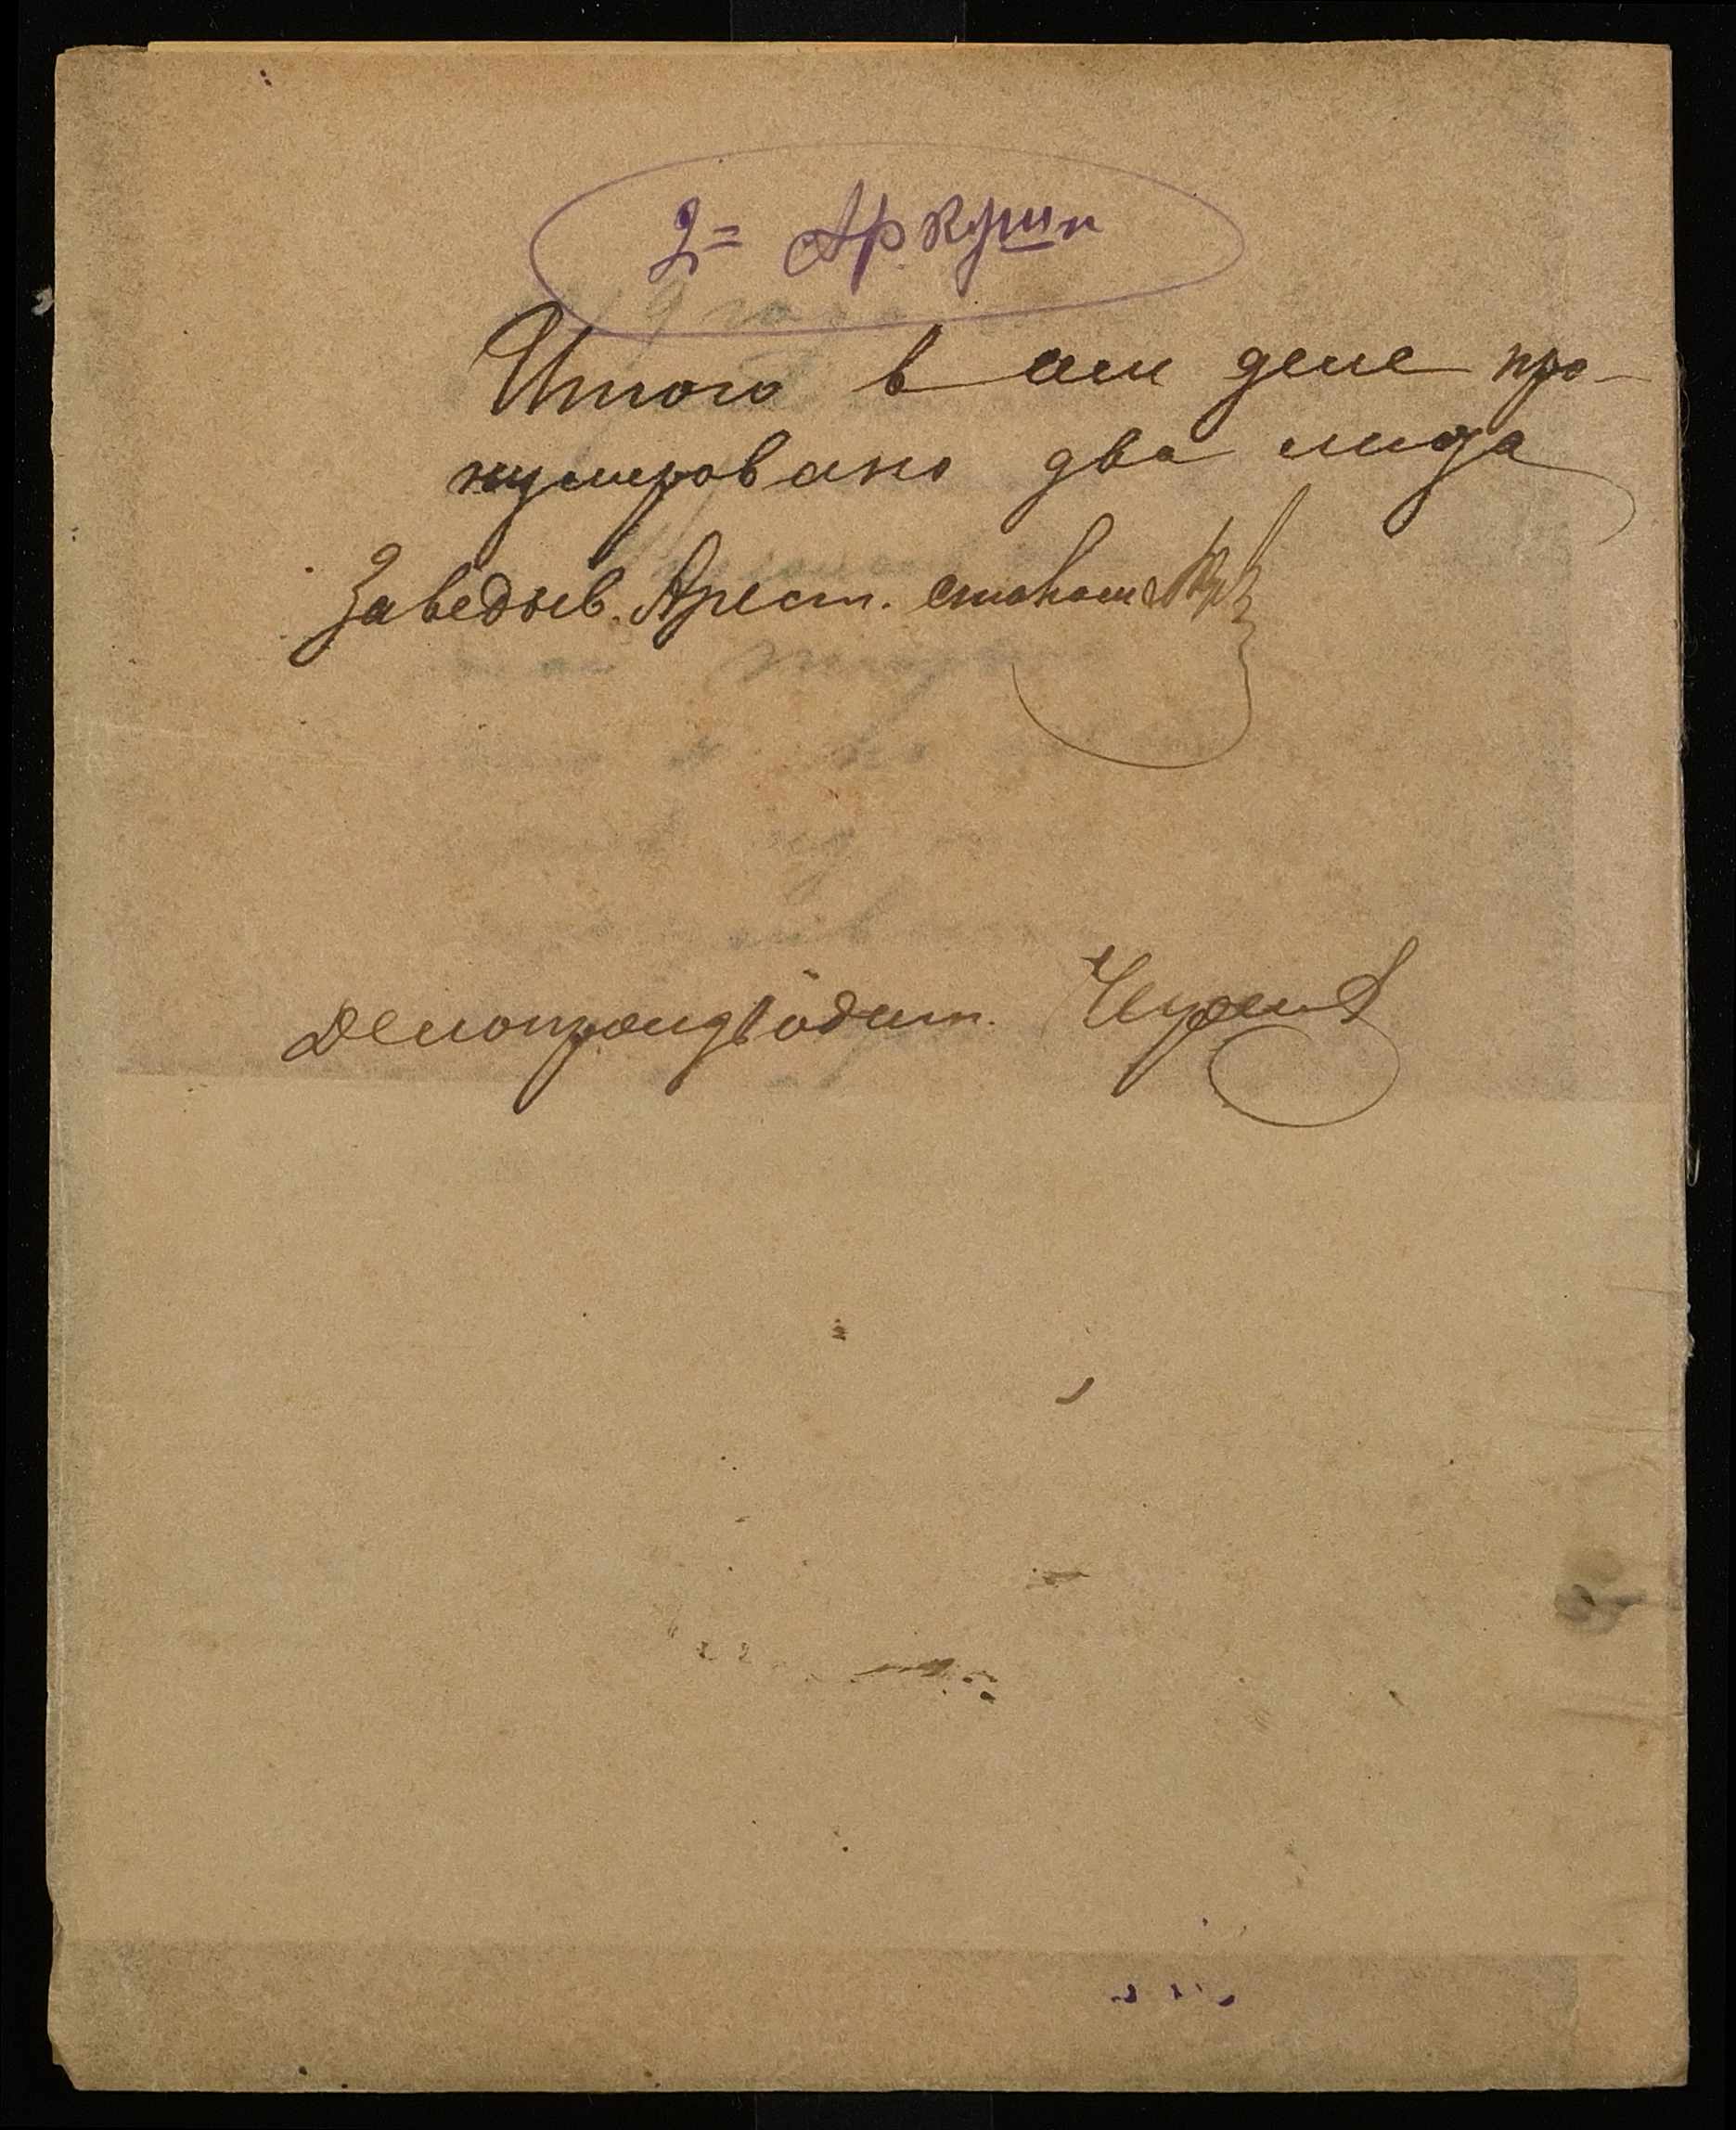 2= Аркуши
Итого в сем деле про-
нумеровано два листа
Заведыв. Арест. столом
Делопроизводит.